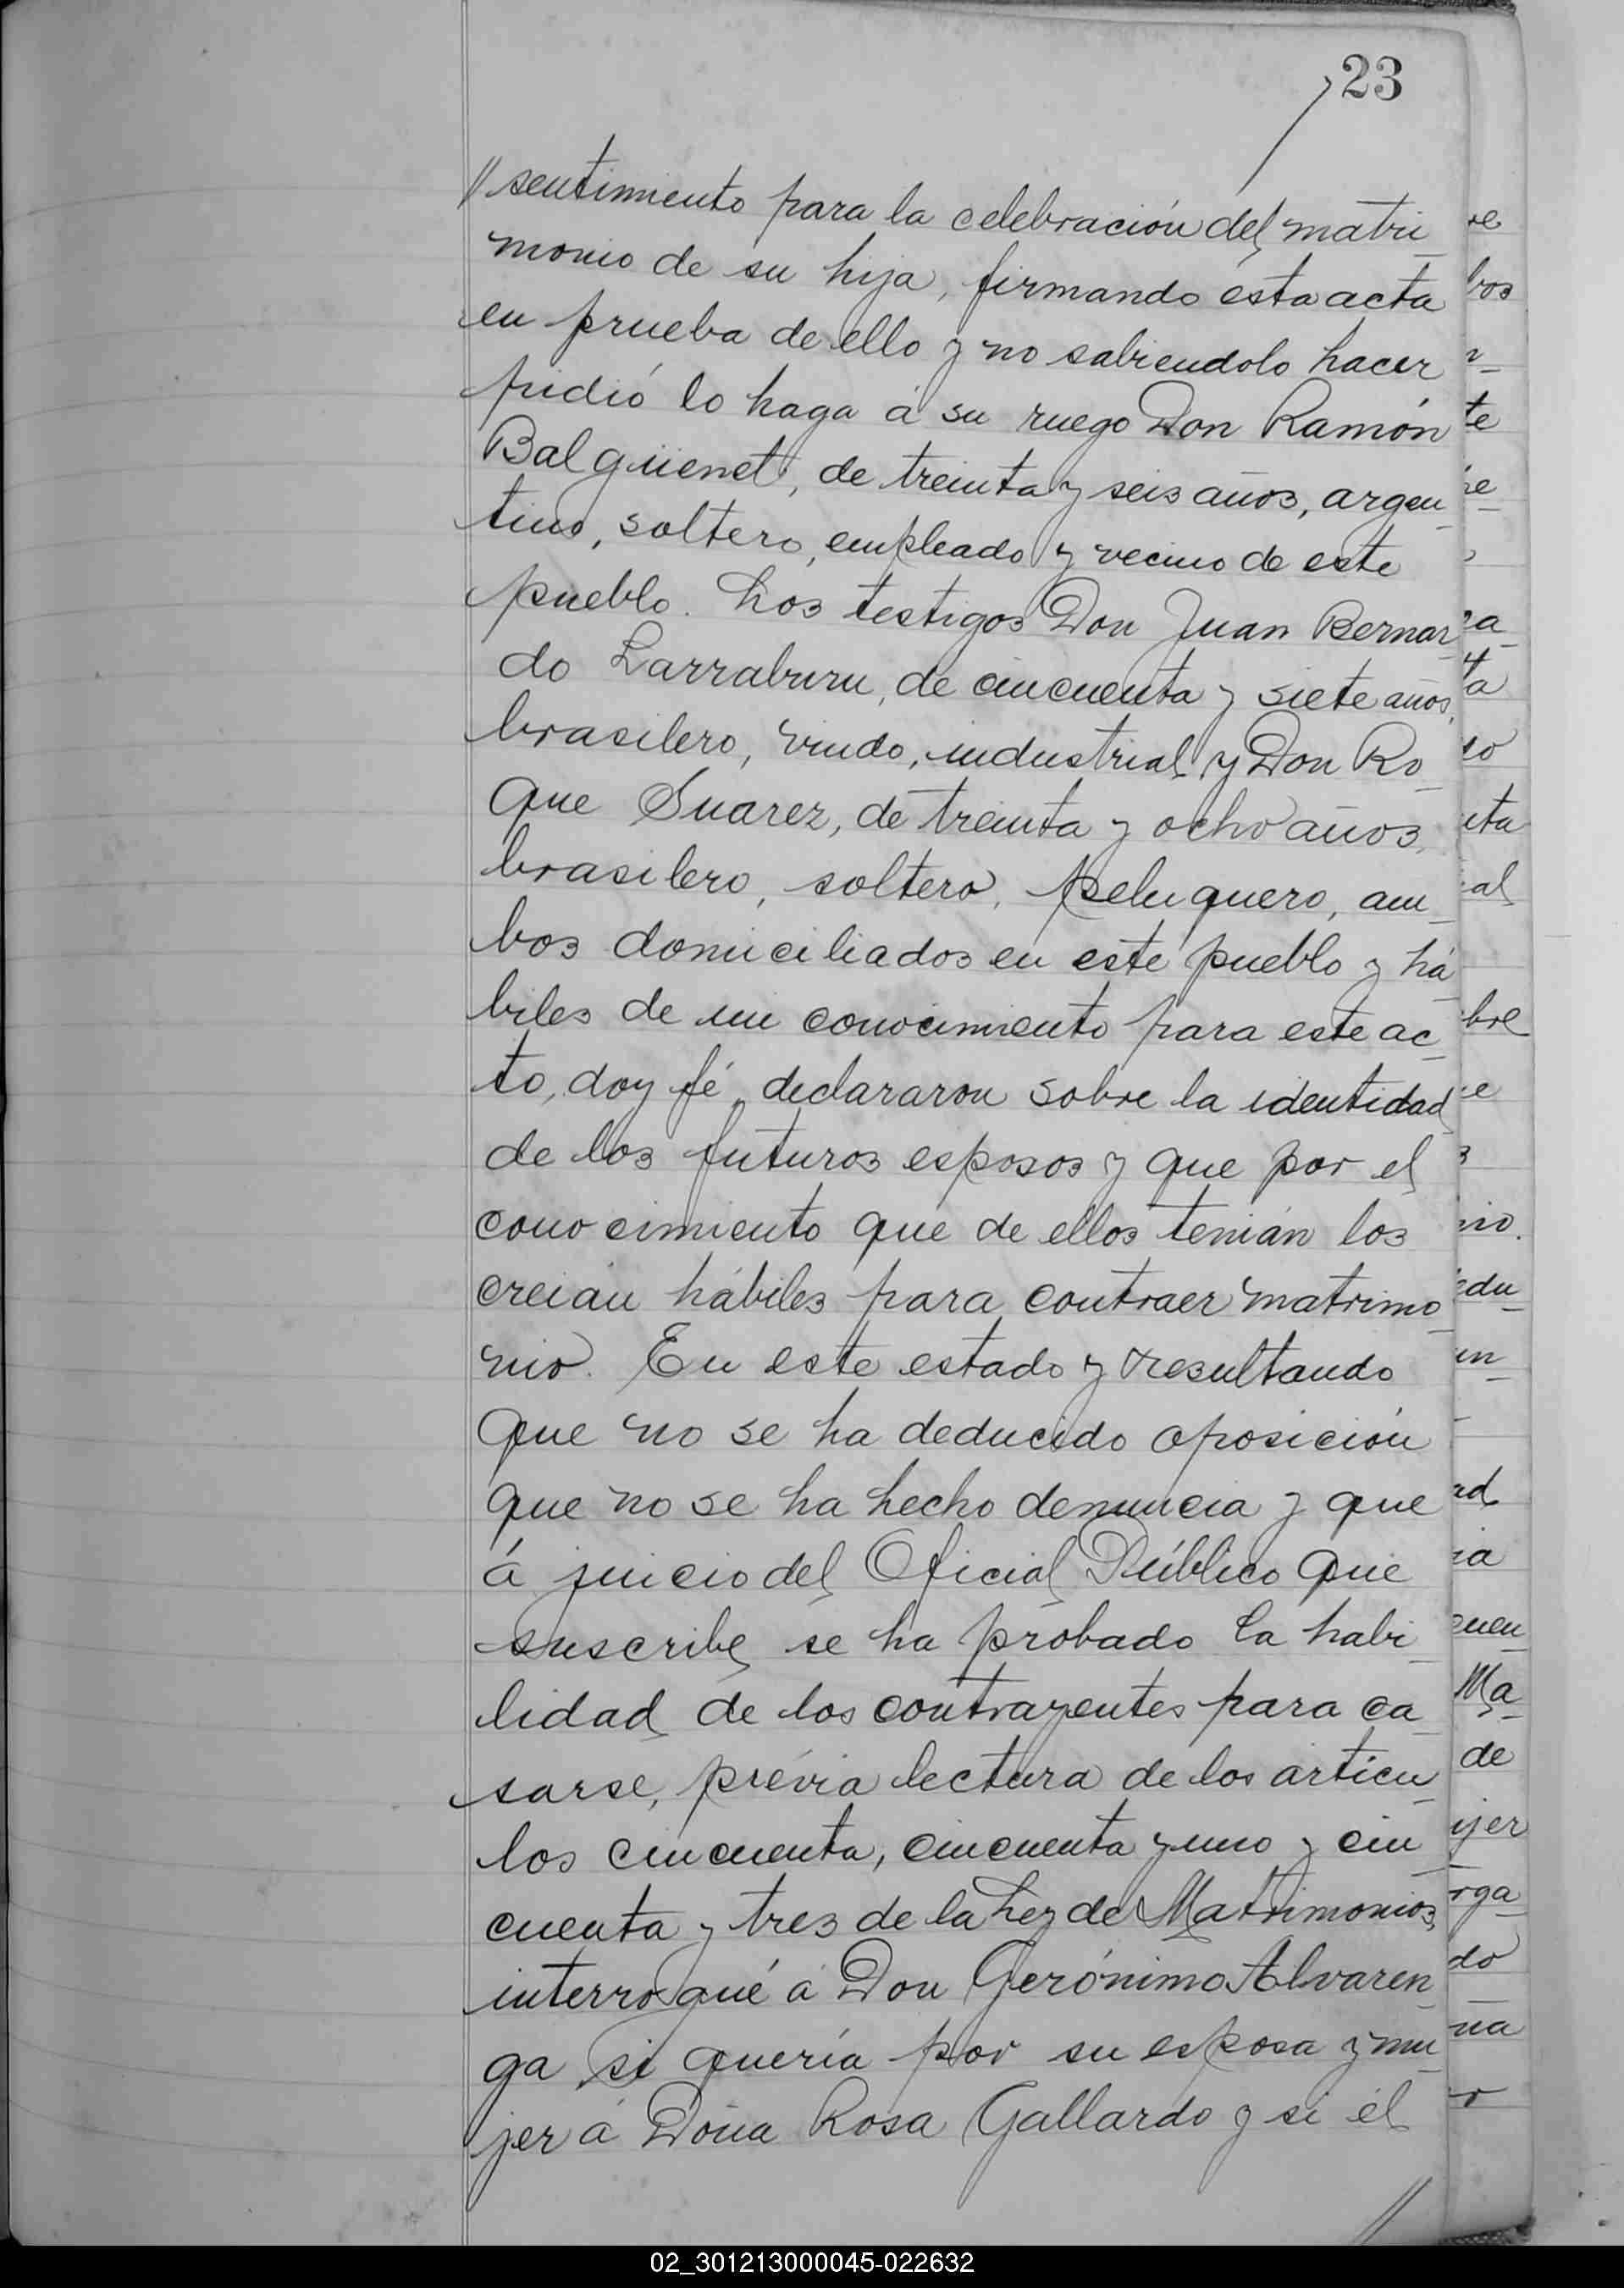 23
// sentimiento para la celebración del matri_
monio de su hija, firmando esta acta
en prueba de ello y no sabiendolo hacer
pidió lo haga á su ruego Don Ramón
Balgüenet, de treinta y seis años, argen_
tino, soltero, empleado y vecino de este
pueblo. Los testigos Don Juan Bernar_
do Larraburu, de cincuenta y siete años,
brasilero, viudo, industrial y Don Ro_
que Suarez, de treinta y ocho años,
brasilero, soltero, peluquero, am_
bos domiciliados en este pueblo y há_
biles de mi conocimiento para este ac_
to, doy fé, declararon sobre la identidad
de los futuros esposos y que por el
conocimiento que de ellos tenián los
creián hábiles para contraer matrimo_
nio. En este estado y resultando
que no se ha deducido oposición
que no se ha hecho denuncia y que
á juicio del Oficial Público que
suscribe se ha probado la habi_
lidad de los contrayentes para ca_
sarse, prévia lectura de los articu_
los cincuenta, cincuenta y uno y cin_
cuenta y tres de la Ley de Matrimonios,
interrogué á Don Gerónimo Alvaren_
ga si quería por su esposa y mu_
jer á Doña Rosa Gallardo y si él
//
02_301213000045-022632